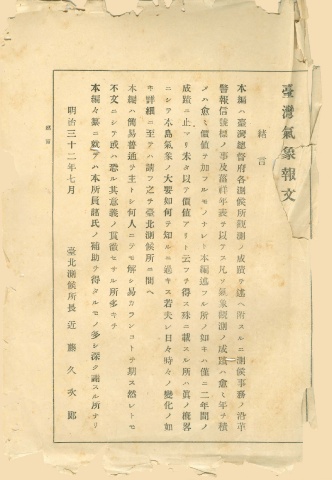 臺灣氣象報文
緒言
本編ハ臺灣總督府各測候所觀測ノ成蹟ヲ述ヘ附スルニ測候事務ノ沿革
警報信號標ノ事及累祥年表ヲ以テス凡ソ氣象觀測ノ成蹟ハ愈ミ年ヲ積
メハ愈ミ價値ヲ加フルモノナレト本編述フル所ノ如キハ僅ニ二年間ノ
成蹟ニ止マリ未タ以テ價値アリト云フヲ得ス殊ニ載スル所ハ眞ノ概畧
ニシテ本島氣象ノ大要如何ヲ知ルニ過キス若夫レ日々時々ノ變化ノ如
キ詳細ニ至テハ請フ之ヲ臺北測候所ニ問ヘ
本編ハ簡易普通ヲ主トシ何人ニテモ解シ易カランコトヲ期ス然レトモ
不文ニシテ或ハ恐ル其意義ノ貫徹セサル所多キヲ
本編々纂ニ就テハ本所員諸氏ノ補助ヲ得タルモノ多シ深ク謝スル所ナリ
明治三十二年七月
臺北測候所長 近藤久次郎
緒言